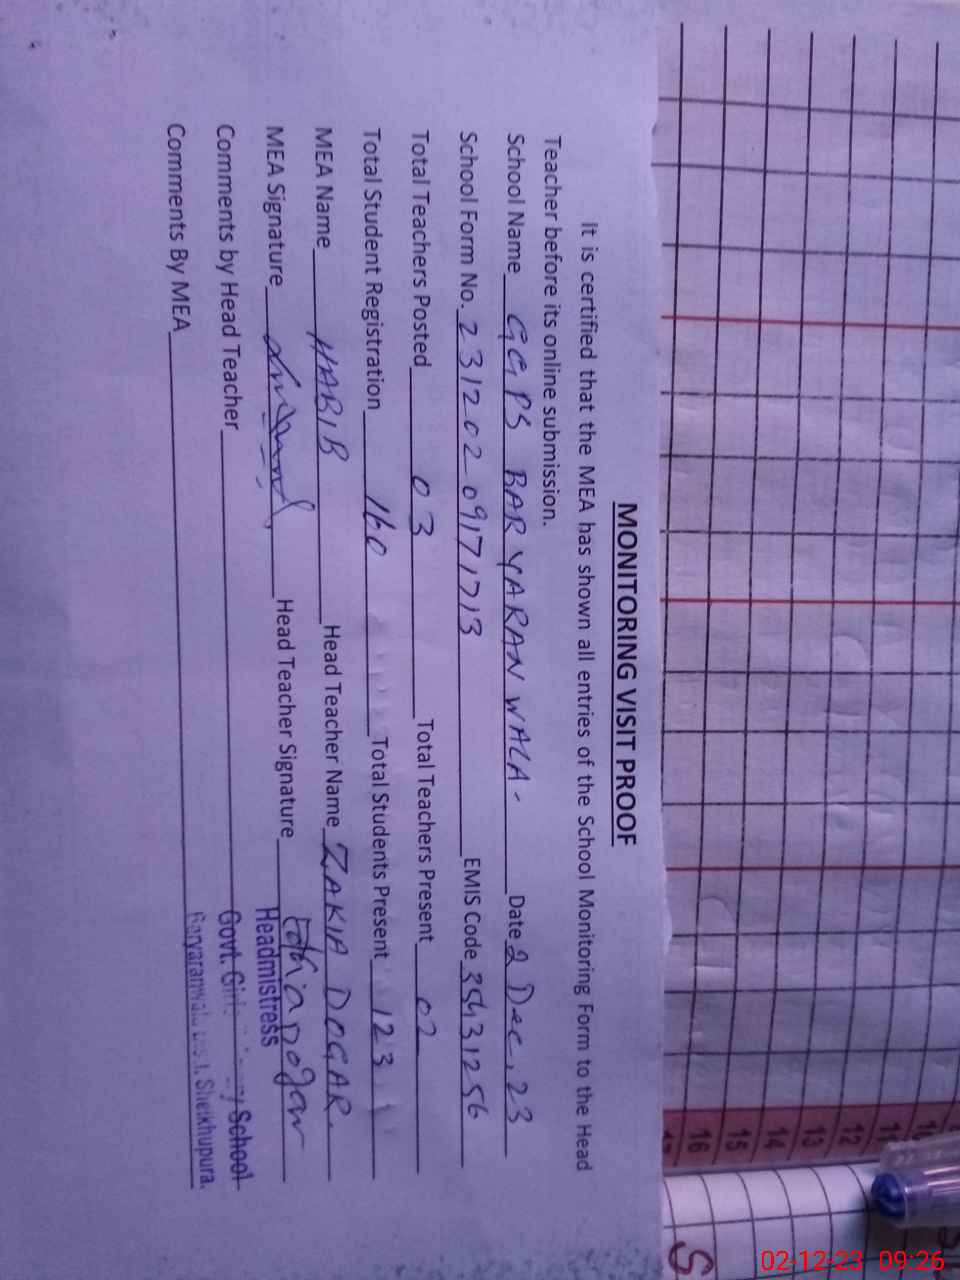 MONITORING VISIT PROOF
It is certified that the MEA has shown all entries of the School Monitoring Form to the Head
Teacher before its online submission.
School Name GGPS BARYARAN WALA - Date 2 Dec, 23
School Form No. 23120209171713 EMIS Code 35431256
Total Teachers Posted 03 Total Teachers Present 02
Total Student Registration 160 Total Students Present 123
MEA Name HABIB Head Teacher Name ZAKIA DOGAR.
MEA Signature Head Teacher Signature
Headmistress
Comments by Head Teacher Govt. Girls School
Comments By MEA Baryaranwala Sheikhupura.
16
15
14
13
12
11
S
02-12-23 09:26